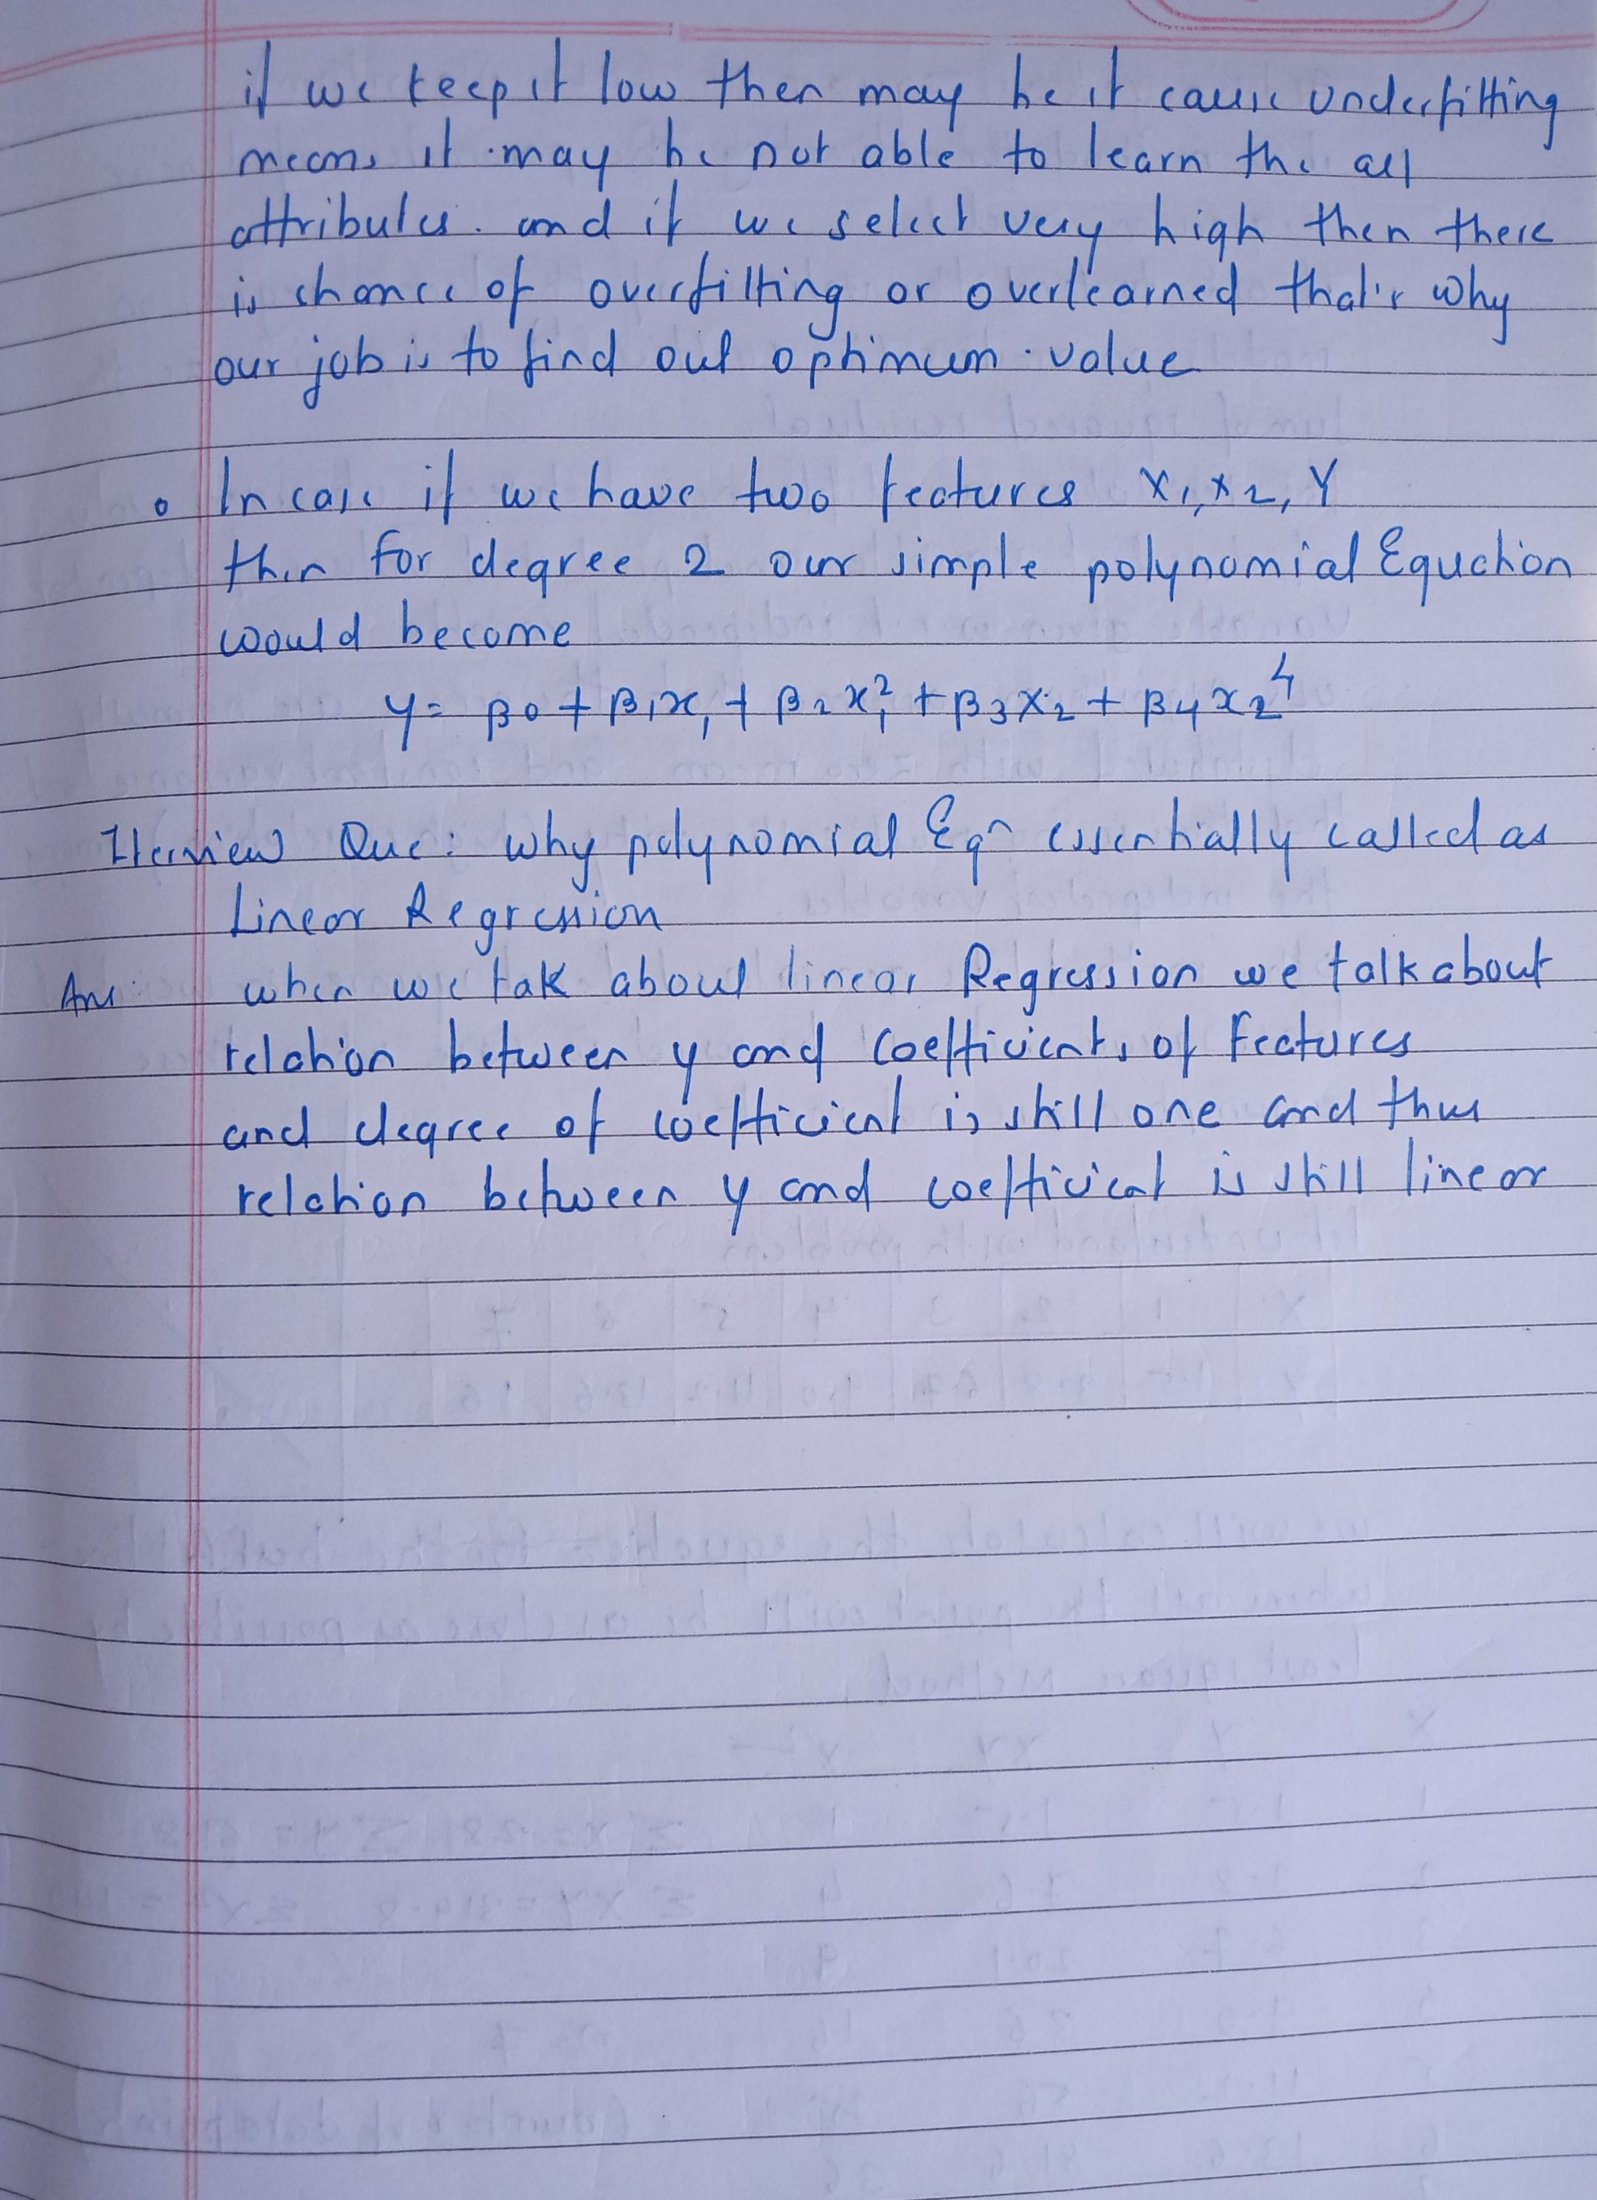 if we keep it low then may be it cause underfitting
means it may be not able to learn the all
attributes. and if we select very high then there
is chance of overfitting or overlearned that's why
our job is to find out optimum value
In case if we have two features X₁, X₂, Y
then for degree 2 our simple polynomial Equation
would become
y = β0 + β₁x₁ + β₂x₁² + β₃x₂ + β₄x₂⁴
Iterview Que: why polynomial Eqⁿ essentially called as
Linear Regression
Ans: when we tak about linear Regression we talk about
relation between y and coefficients of features
and degree of coefficient is still one and thus
relation between y and coefficient is still linear